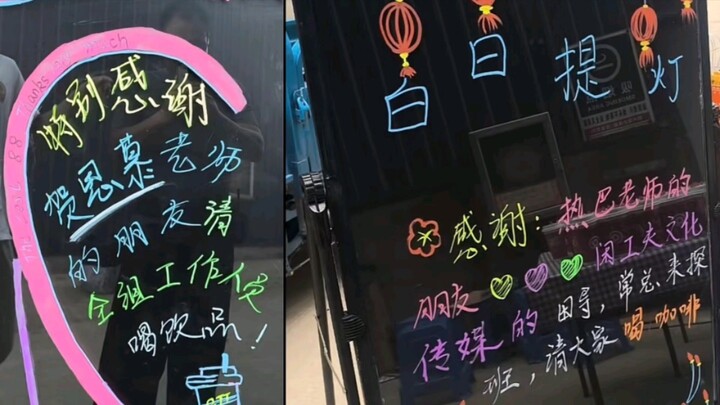 Thanks very much
特别感谢
贺恩慕老师
的朋友请
全组工作人员
喝饮品！
白日提灯
感谢：热巴老师的
朋友 闲工夫文化
传媒的 田导，常总来探
班，请大家喝咖啡